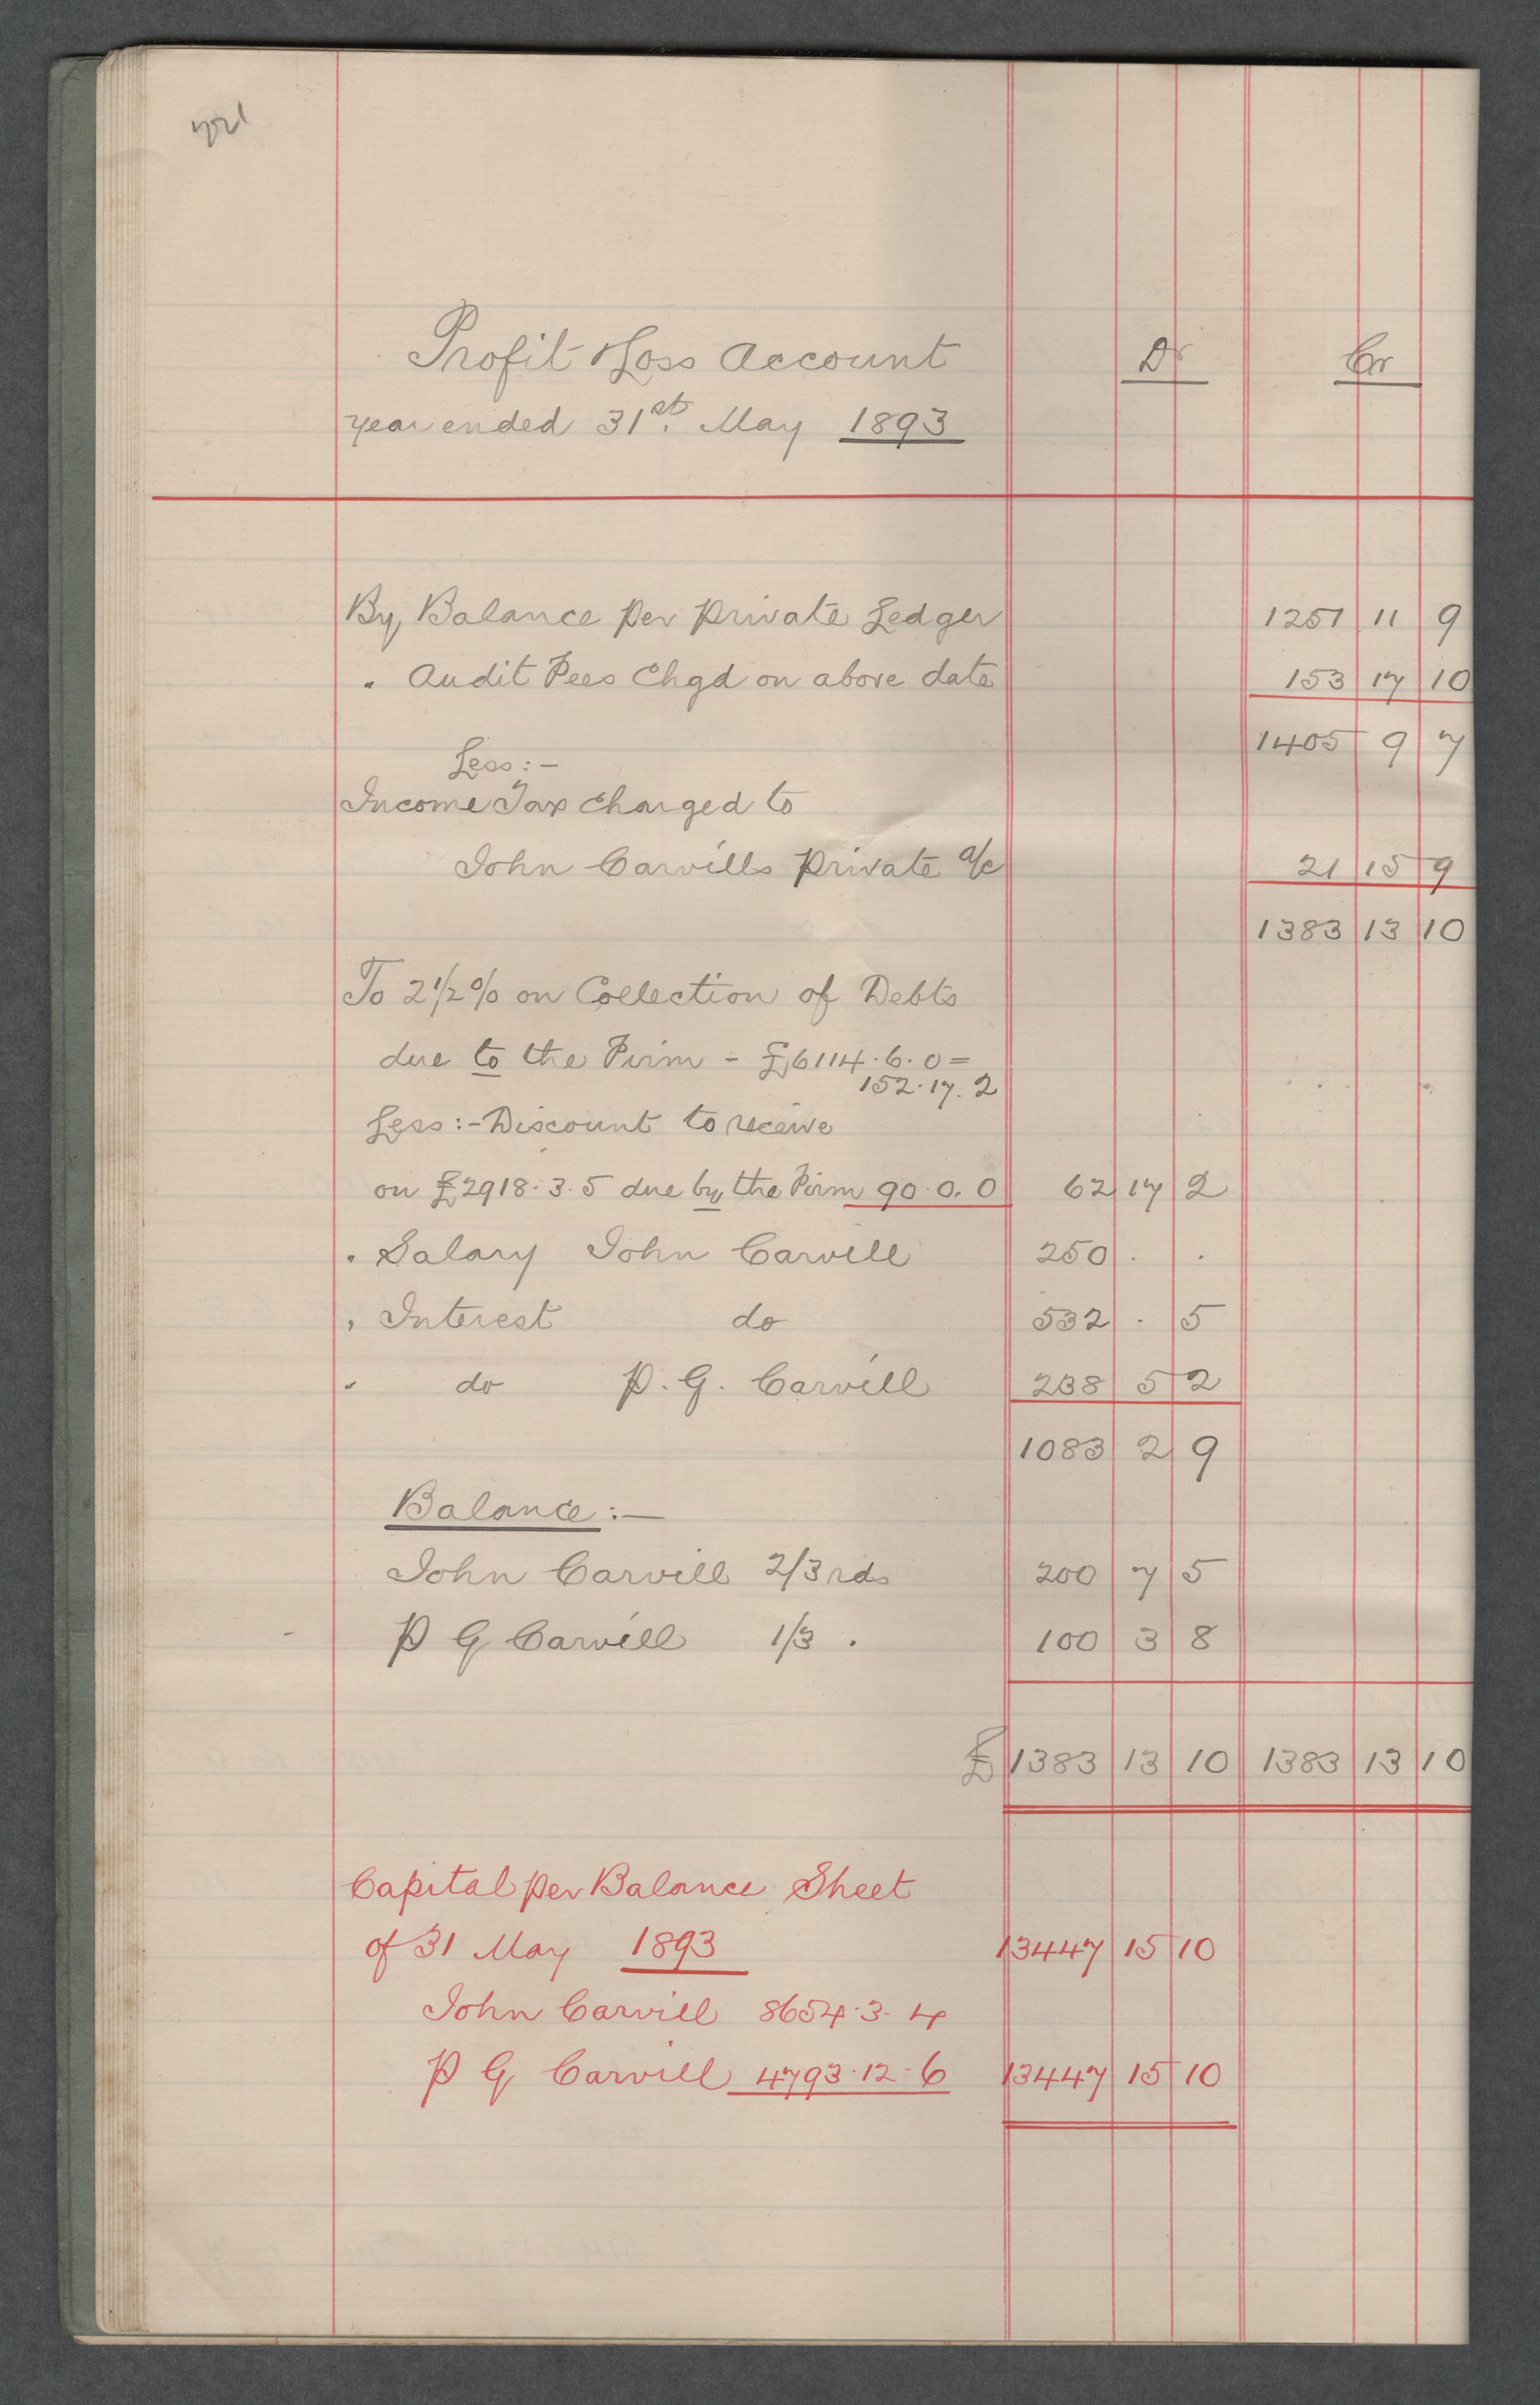 Profit & Loss Account Dr Cr
year ended 31st. May 1893
By Balance per Private Ledger 1251 11 9
" Audit Fees Chgd on above date 153 17 10
1405 9 7
Less:-
Income Tax charged to
John Carvills Private a/c 21 15 9
1383 13 10
To 2 1/2 % on Collection of Debts
due to the Firm - £6114.6.0 =
152.17.2
Less:- Discount to receive
on £2918.3.5 due by the Firm 90.0.0 62 17 2
" Salary John Carvill 250 . .
" Interest do 532 . 5
" do P. G. Carvill 238 5 2
1083 2 9
Balance:-
John Carvill 2/3rds 200 7 5
P G Carvill 1/3 . 100 3 8
£ 1383 13 10 1383 13 10
Capital per Balance Sheet
of 31 May 1893 13447 15 10
John Carvill 8654.3.4
P G Carvill 4793.12.6 13447 15 10